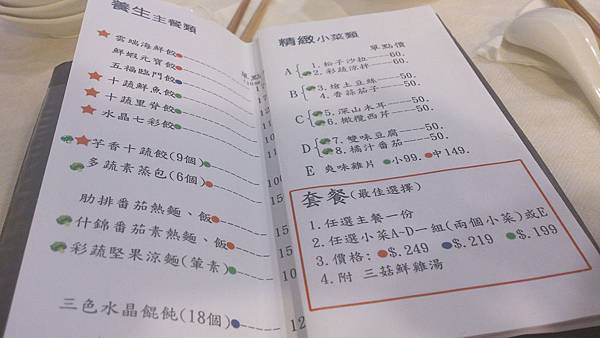 養生主餐類
單點
雲端海鮮餃
鮮蝦元寶餃
五福臨門餃
十蔬鮮魚餃
十蔬里脊餃
水晶七彩餃
芋香十蔬餃(9個)
多蔬素蒸包(6個)
肋排番茄熱麵、飯
什錦番茄素熱麵、飯
彩蔬堅果涼麵(葷素)
三色水晶餛飩(18個)
精緻小菜類
單點價
A 1.松子沙拉----60.
2.彩蔬涼拌----60.
B 3.燴土豆絲----50.
4.香蒜茄子----50.
C 5.深山木耳----50.
6.橄欖西芹----50.
D 7.雙味豆腐----50.
8.橘汁番茄----50.
E 爽味雞片 小99. 中149.
套餐(最佳選擇)
1.任選主餐一份
2.任選小菜A-D一組(兩個小菜)或E
3.價格:$.249 $.219 $.199
4.附 三菇鮮雞湯